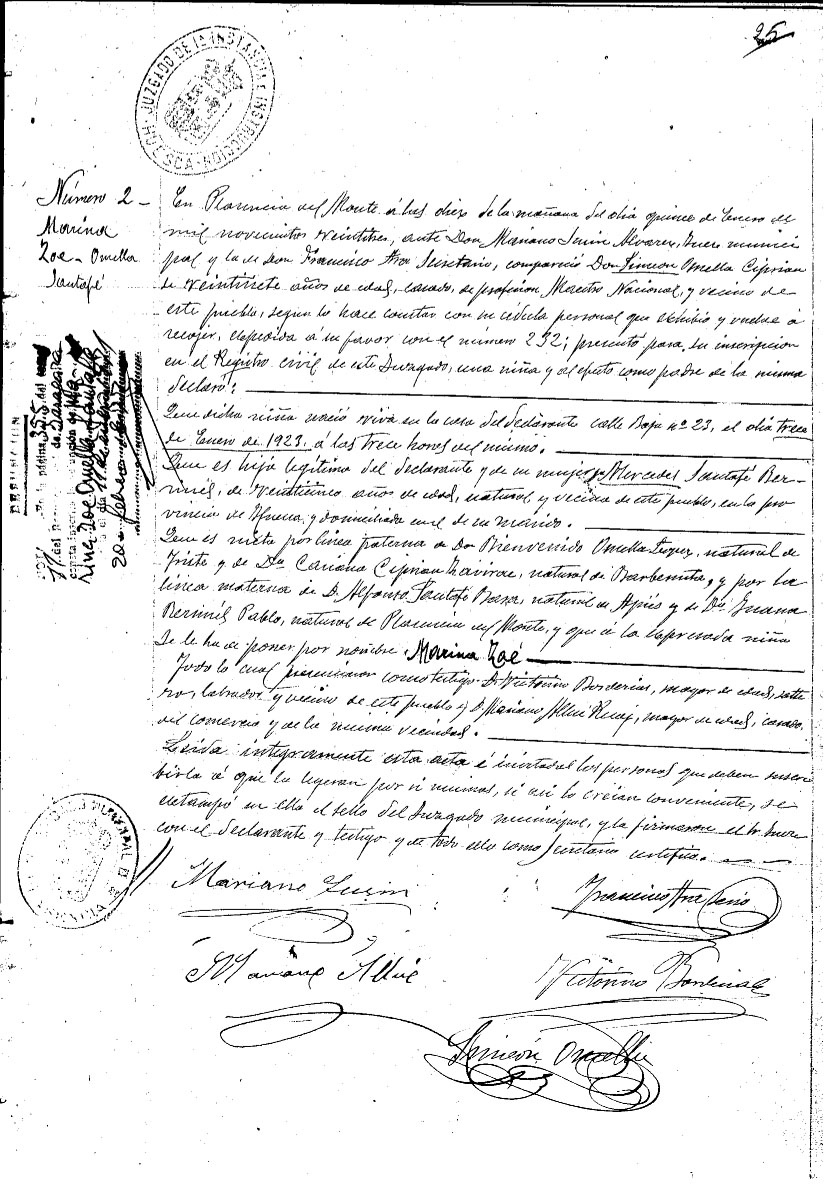 25
JUZGADO DE 1ª INSTANCIA E INSTRUCCION
HUESCA
Número 2 -
Marina
Zoe - Omella
Santafé
En Plasencia del Monte á las diez de la mañana del dia quince de Enero de
mil novecientos veintitres, ante Don Mariano Alvarez, Juez munici
pal y la de don Francisco Ara Secretario, compareció Don Simeon Omella Ciprian
de veintisiete años de edad, casado, de profesion Maestro Nacional, y vecino de
este pueblo, segun lo hace constar con su cédula personal que exhibio y vuelve á
recojer, expedida á su favor con el número 232; presentó para su inscripcion
en el Registro civil de este Juzgado, una niña y al efecto como padre de la misma
declaró:
Que dicha niña nació viva en la casa del declarante calle Baja nº 23, el dia trece
de Enero de 1923, á las trece horas del mismo.
Que es hija legítima del declarante y de su mujer Dª Mercedes Santafé Ber-
nués, de veinticinco años de edad, natural y vecina de este pueblo, en la pro
vincia de Huesca, y domiciliada en el de su marido.
Que es nieta por línea paterna de Don Bienvenido Omella natural de
Triste y de Dª Ciprian natural de Barbenuta, y por la
línea materna de D. Alfonso Santafé natural de Apiés y de Dª Juana
Pablo, natural de Plasencia del Monte, y que á la expresada niña
se le ha de poner por nombre Marina Zoé
Todo lo cual presenciaron como testigos D. Victorino Borderias, mayor de edad, solte
ro, labrador y vecino de este pueblo y D. Mariano Allué mayor de edad, casado,
del comercio y de la misma vecindad.
Leida integramente esta acta é invitadas las personas que deben suscri
birla á que la leyeran por si mismas, si asi lo creian conveniente, se
estampó en ella el sello del Juzgado municipal, y la firmaron el Sr. Juez
con el declarante y testigos y de todo ello como Secretario certifico.
Mariano
Francisco Ara
Mariano Allué
Victorino Borderias
Simeón Omella